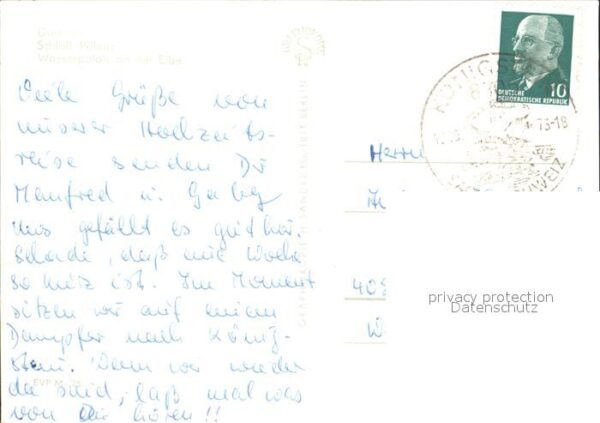 Schloß Pillnitz
Wasserpalais an der Elbe
Viele Grüße von
unserer Hochzeits-
reise senden Dir
Manfred u. Gaby
Uns gefällt es gut hier,
schade, daß die Woche
so kurz ist. Im Moment
sitzen wir auf einem
Dampfer nach König-
stein. Wenn wir wieder
da sind, laß mal was
von Dir hören!!
EVP M
10
DEUTSCHE
DEMOKRATISCHE REPUBLIK
73-18
Herrn
409
privacy protection
Datenschutz